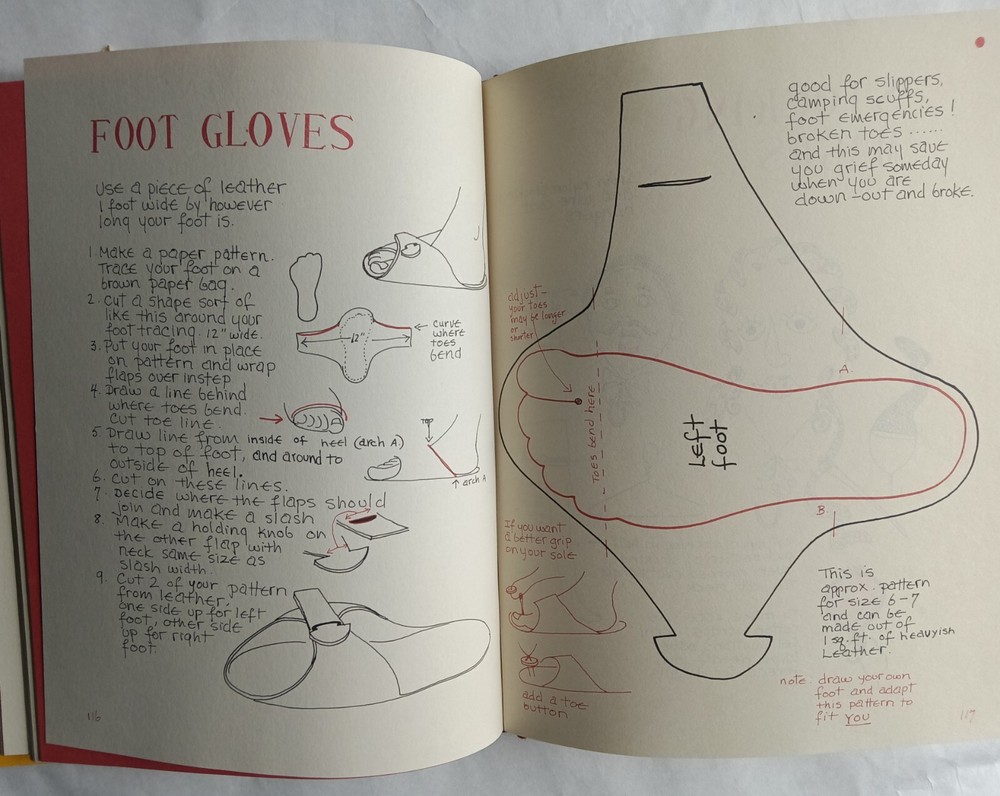 FOOT GLOVES
Use a piece of leather
1 foot wide by however
long your foot is.
1. Make a paper pattern.
Trace your foot on a
brown paper bag.
2. Cut a shape sort of
like this around your
foot tracing. 12" wide.
3. Put your foot in place
on pattern and wrap
flaps over instep
4. Draw a line behind
where toes bend.
cut toe line.
5. Draw line from inside of heel (arch A)
to top of foot, and around to
outside of heel.
6. Cut on these lines.
7. Decide where the flaps should
join and make a slash
8. Make a holding knob on
the other flap with
neck same size as
slash width.
9. Cut 2 of your pattern
from leather,
one side up for left
foot, other side
up for right
foot.
12"
curve
where
toes
bend
TOP
arch A
116
good for slippers,
camping scuffs,
foot emergencies!
broken toes ......
and this may save
you grief someday
when you are
down-out and broke.
adjust-
your toes
may be longer
or
shorter
Toes bend here
Left
foot
A
B
If you want
a better grip
on your sole
add a toe
button
This is
approx. pattern
for size 6-7
and can be
made out of
1 sq. ft. of heavyish
Leather.
note: draw your own
foot and adapt
this pattern to
fit you
117